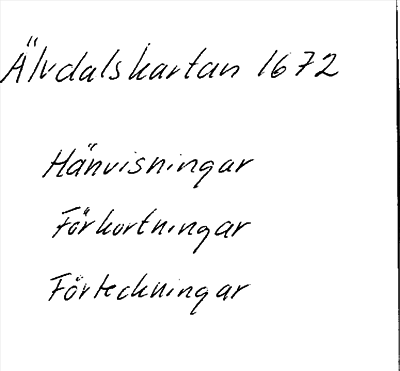 Älvdalskartan 1672
Hänvisningar
Förkortningar
Förteckningar